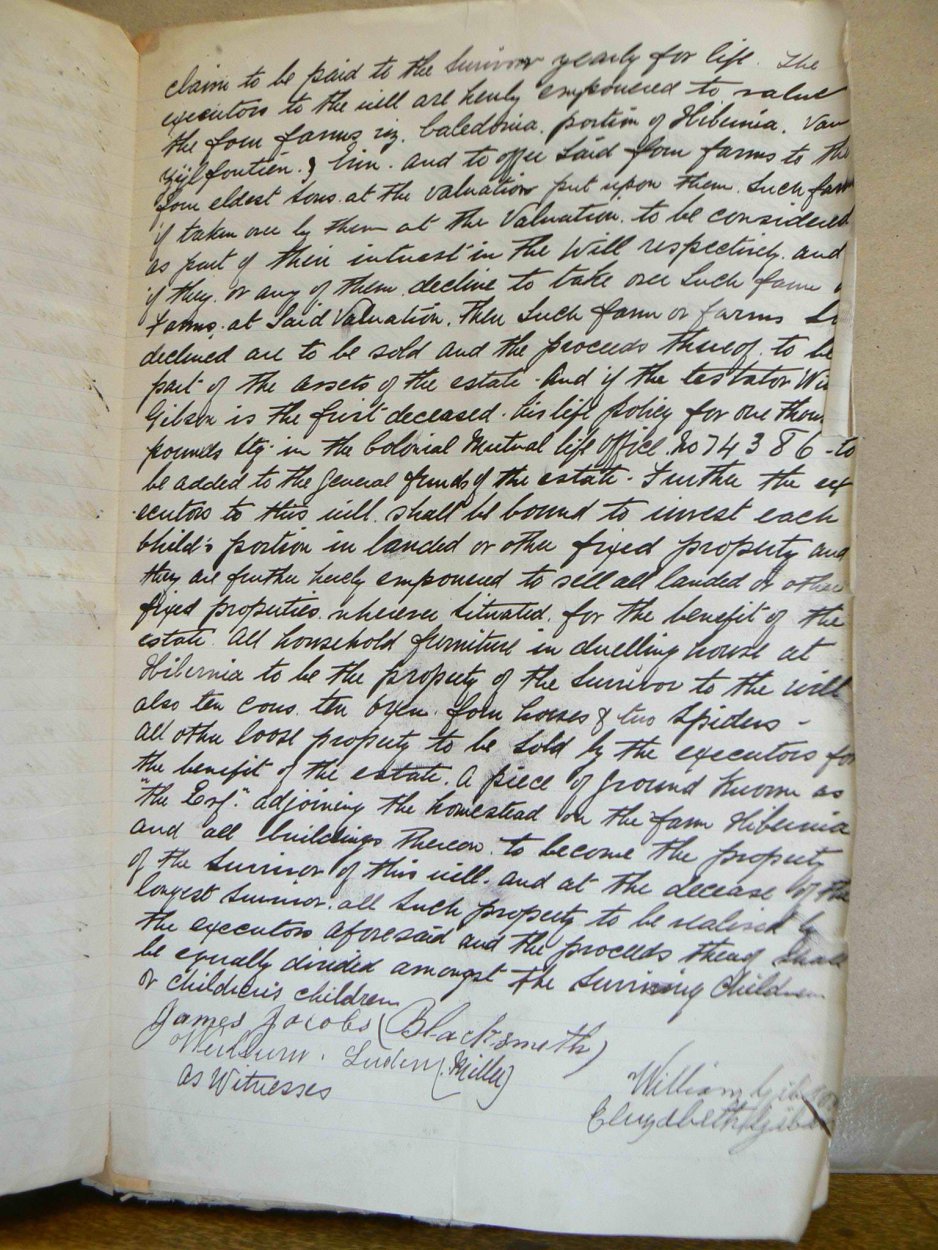 claim to be paid to the Survivor yearly for life. The
executors to the will are hereby empowered to value
the four farms viz. Caledonia. portion of Hibernia. Van
fontien. & Erin. and to offer Said four farms to the
four eldest sons. at the valuation put upon them. Such farm
if taken over by them at the Valuation. to be considered
as part of their interest in the Will respectively. and
if they. or any of them. decline to take over Such farm
farms. at Said Valuation. Then Such farm or farms So
declined are to be sold and the proceeds thereof. to be
part of the assets of the estate. And if the testator Wm
Gibson is the first deceased. his life policy for one thous
pounds Stg. in the Colonial Mutual life office. No 74386 - to
be added to the general funds of the estate. Further the ex
ecutors to this will. shall be bound to invest each
Child's portion in landed or other fixed property and
they are further hereby empowered to sell all landed or other
fixed properties. wherever Situated. for the benefit of the
estate. All household furniture in dwelling house at
Hibernia to be the property of the Survivor to the will
also ten cows. ten oxen. four horses & two Spiders -
All other loose property to be sold by the executors for
the benefit of the estate. A piece of ground known as
"the Erf". adjoining the homestead on the farm Hibernia
and all buildings thereon. to become the property
of the Survivor of this will. and at the decease of the
longest Survivor. all Such property to be realised by
the executors aforesaid and the proceeds thereof Shall
be equally divided amongst the Surviving Children
or children's children
James Jacobs (Blacksmith)
(Miller)
As Witnesses
William Gibson
Elizabeth Gibson